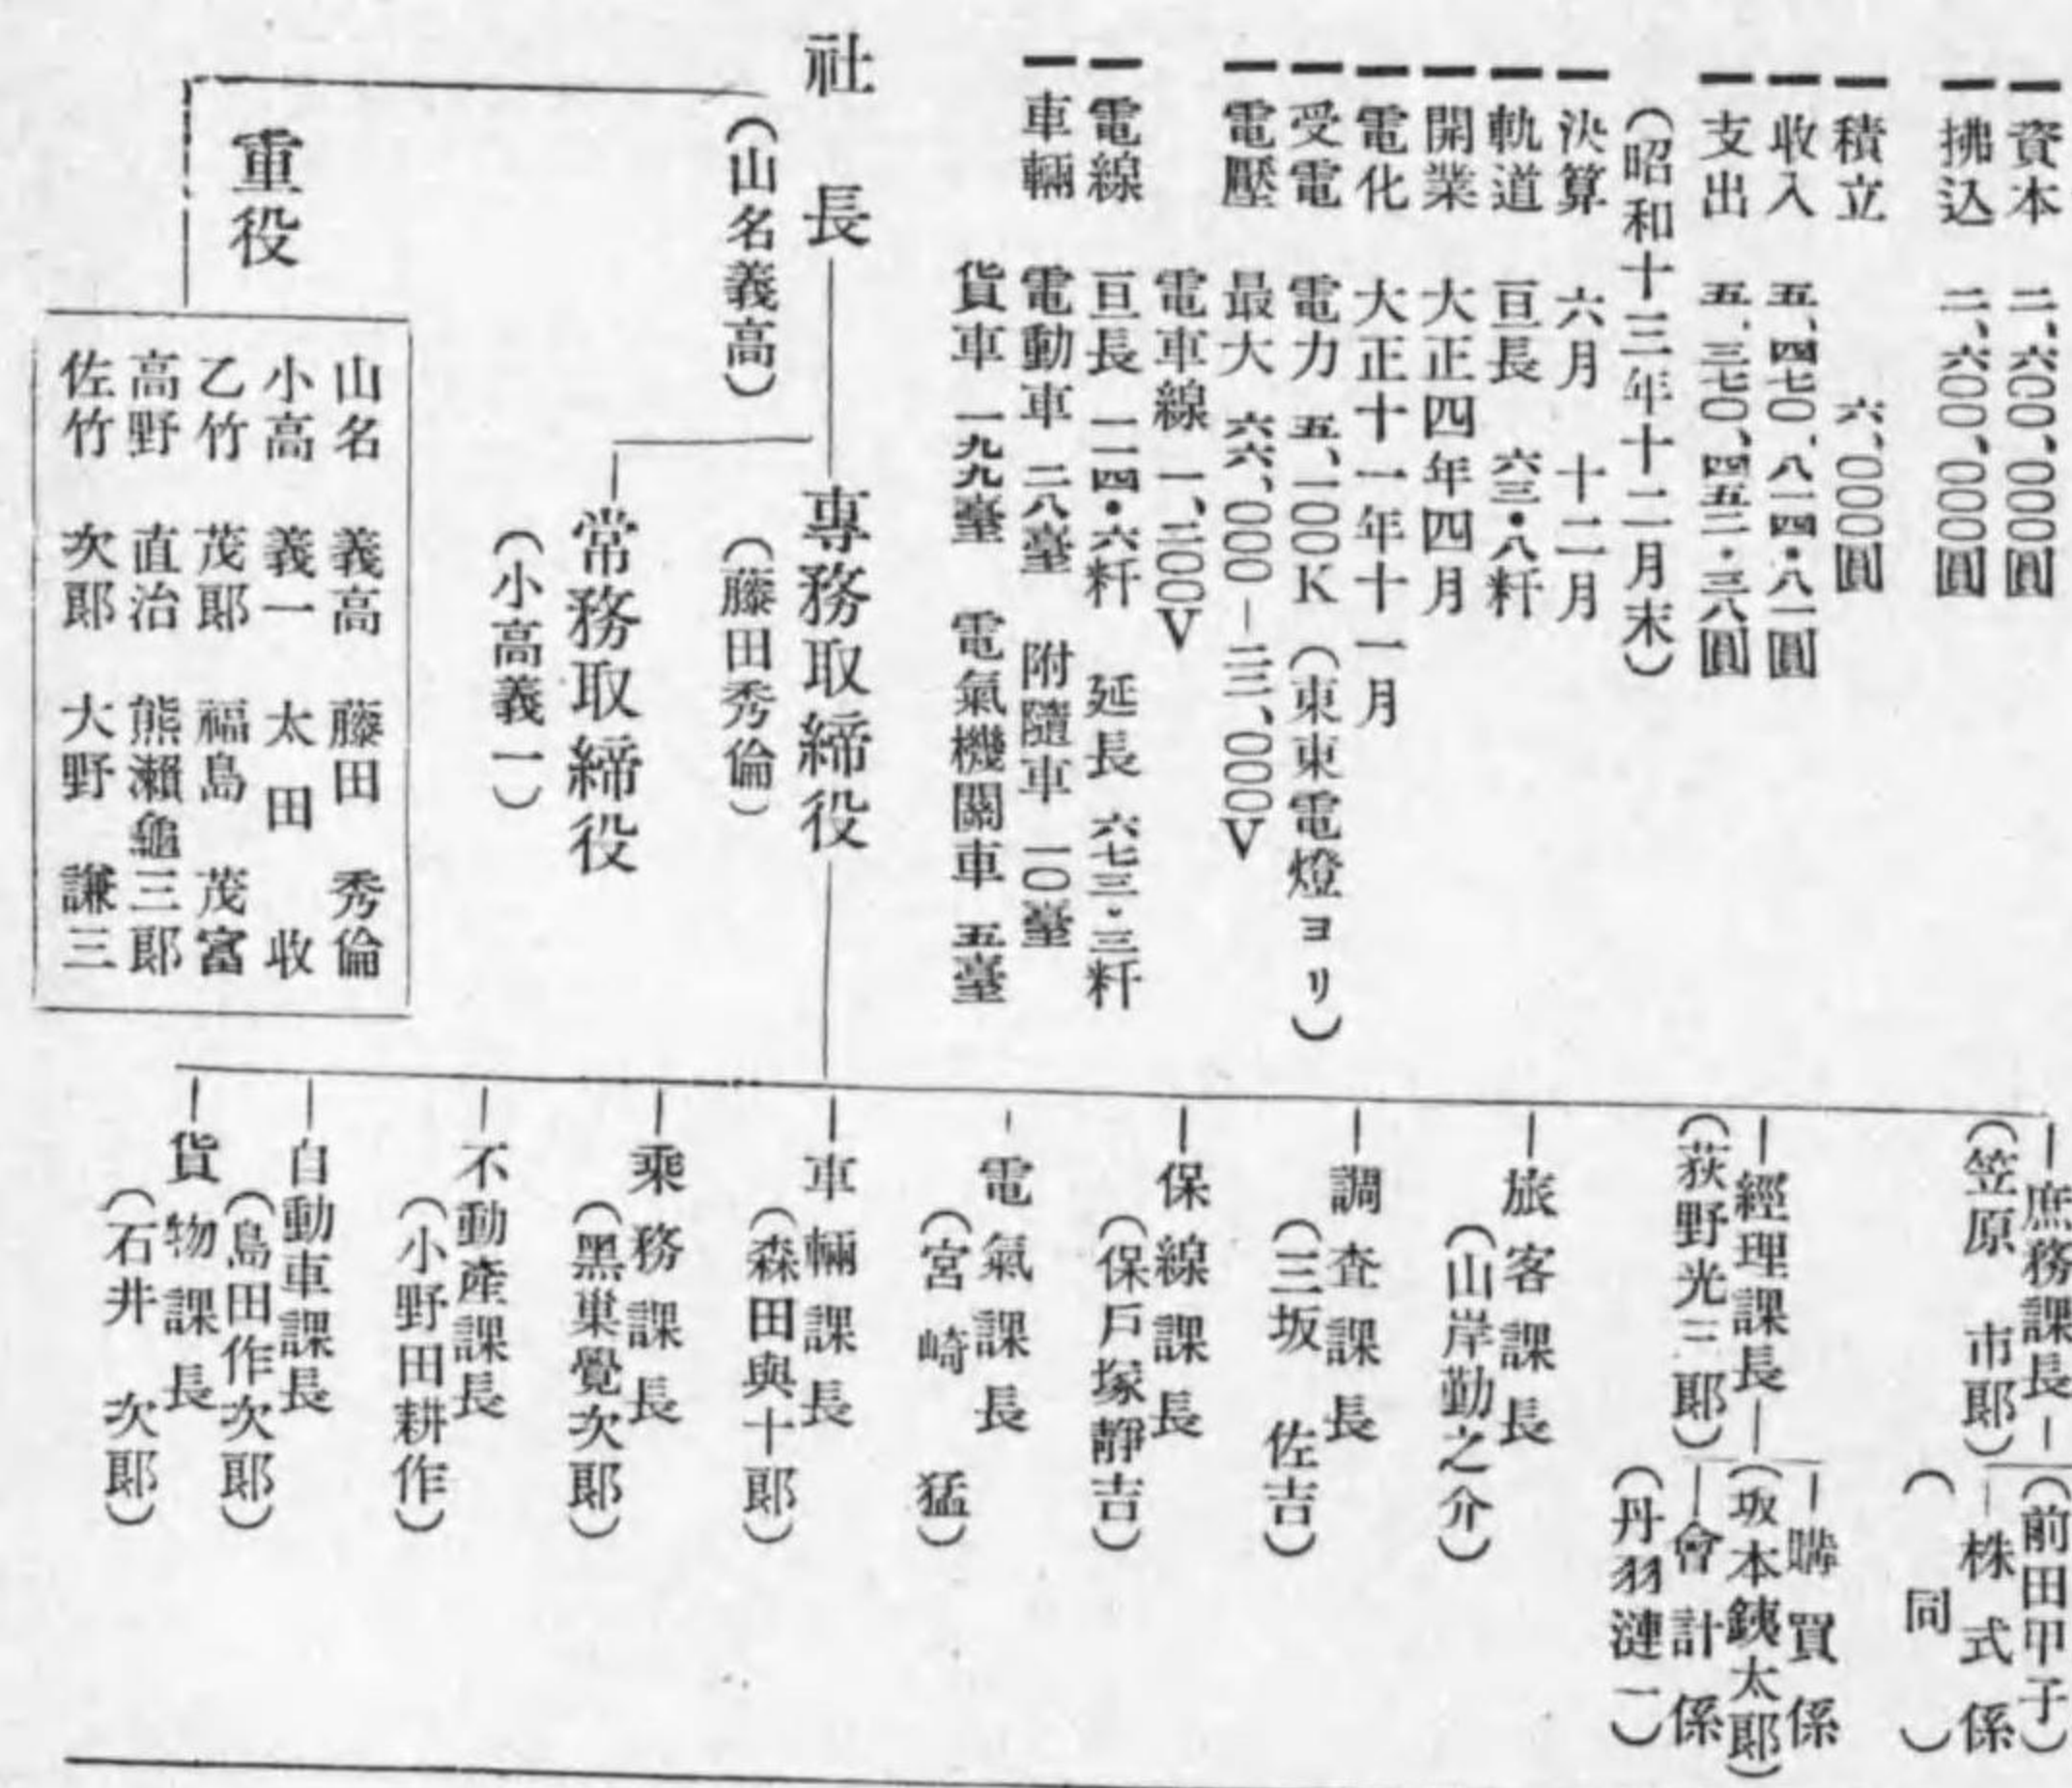 資本　二、六〇〇、〇〇〇圓
拂込　二、六〇〇、〇〇〇圓
積立　六、〇〇〇圓
收入　五、四七〇、八一四・八一圓
支出　五、三七〇、四五二・三八圓
（昭和十三年十二月末）
決算　六月　十二月
軌道　亘長　六三・八粁
開業　大正四年四月
電化　大正十一年十一月
受電　電力　五、一〇〇K（東東電燈ヨリ）
電壓　最大　六六、〇〇〇－二二、〇〇〇V
電車線　一、二〇〇V
電線　亘長　一一四・六粁　延長　六七三・三粁
車輛　電動車　二八臺　附隨車　一〇臺
貨車　一九九臺　電氣機關車　五臺
社長
（山名義高）
專務取締役
（藤田秀倫）
常務取締役
（小高義一）
重役
山名　義高　藤田　秀倫
小高　義一　太田　收
乙竹　茂郞　福島　茂富
高野　直治　熊瀬龜三郞
佐竹　次郞　大野　謙三
庶務課長
（笠原　市郞）
（前田甲子）
株式係
（同）
經理課長
（荻野光三郞）
購買係
（坂本銕太郞）
會計係
（丹羽漣一）
旅客課長
（山岸勤之介）
調査課長
（三坂　佐吉）
保線課長
（保戶塚靜吉）
電氣課長
（宮崎　猛）
車輛課長
（森田與十郞）
乘務課長
（黑巢覺次郞）
不動產課長
（小野田耕作）
自動車課長
（島田作次郞）
貨物課長
（石井　次郞）